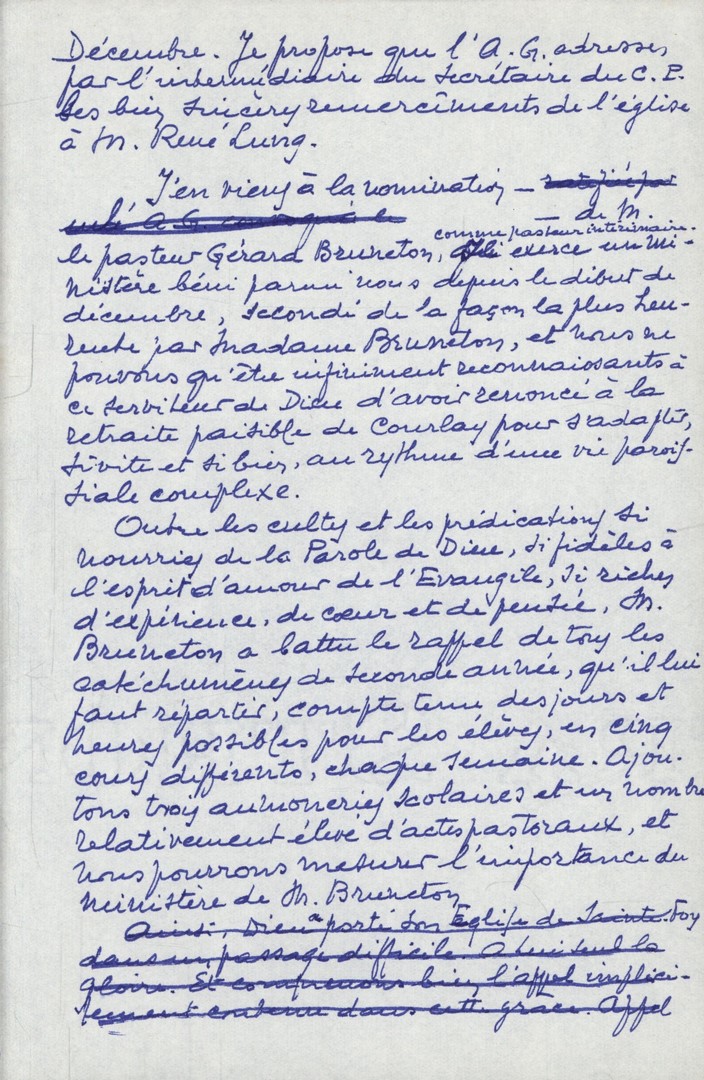 Décembre. Je propose que l'A.G. adresse,
par l'intermédiaire du secrétaire du C.P.
les bien sincères remercîments de l'église
à M. René Lung.
J'en viens à la nomination —
— de M.
comme pasteur intérimaire.
le pasteur Gérard Bruneton, exerce un mi-
nistère béni parmi nous depuis le début de
décembre, secondé de la façon la plus heu-
reuse par Madame Bruneton, et nous ne
pouvons qu'être infiniment reconnaissants à
ce serviteur de Dieu d'avoir renoncé à la
retraite paisible de Courlay pour s'adapter,
si vite et si bien, au rythme d'une vie parois-
siale complexe.
Outre les cultes et les prédications si
nourries de la Parole de Dieu, si fidèles à
l'esprit d'amour de l'Evangile, si riches
d'expérience, de cœur et de pensée, M.
Bruneton a battu le rappel de tous les
catéchumènes de seconde année, qu'il lui
faut répartir, compte tenu des jours et
heures possibles pour les élèves, en cinq
cours différents, chaque semaine. Ajou-
tons trois aumôneries scolaires et un nombre
relativement élevé d'actes pastoraux, et
nous pourrons mesurer l'importance du
ministère de M. Bruneton
Ainsi, Dieu a porté son Eglise de Sainte-Foy
dans un passage difficile. A lui seul la
gloire. Et comprenons bien l'appel implici-
tement contenu dans cette grâce. Appel